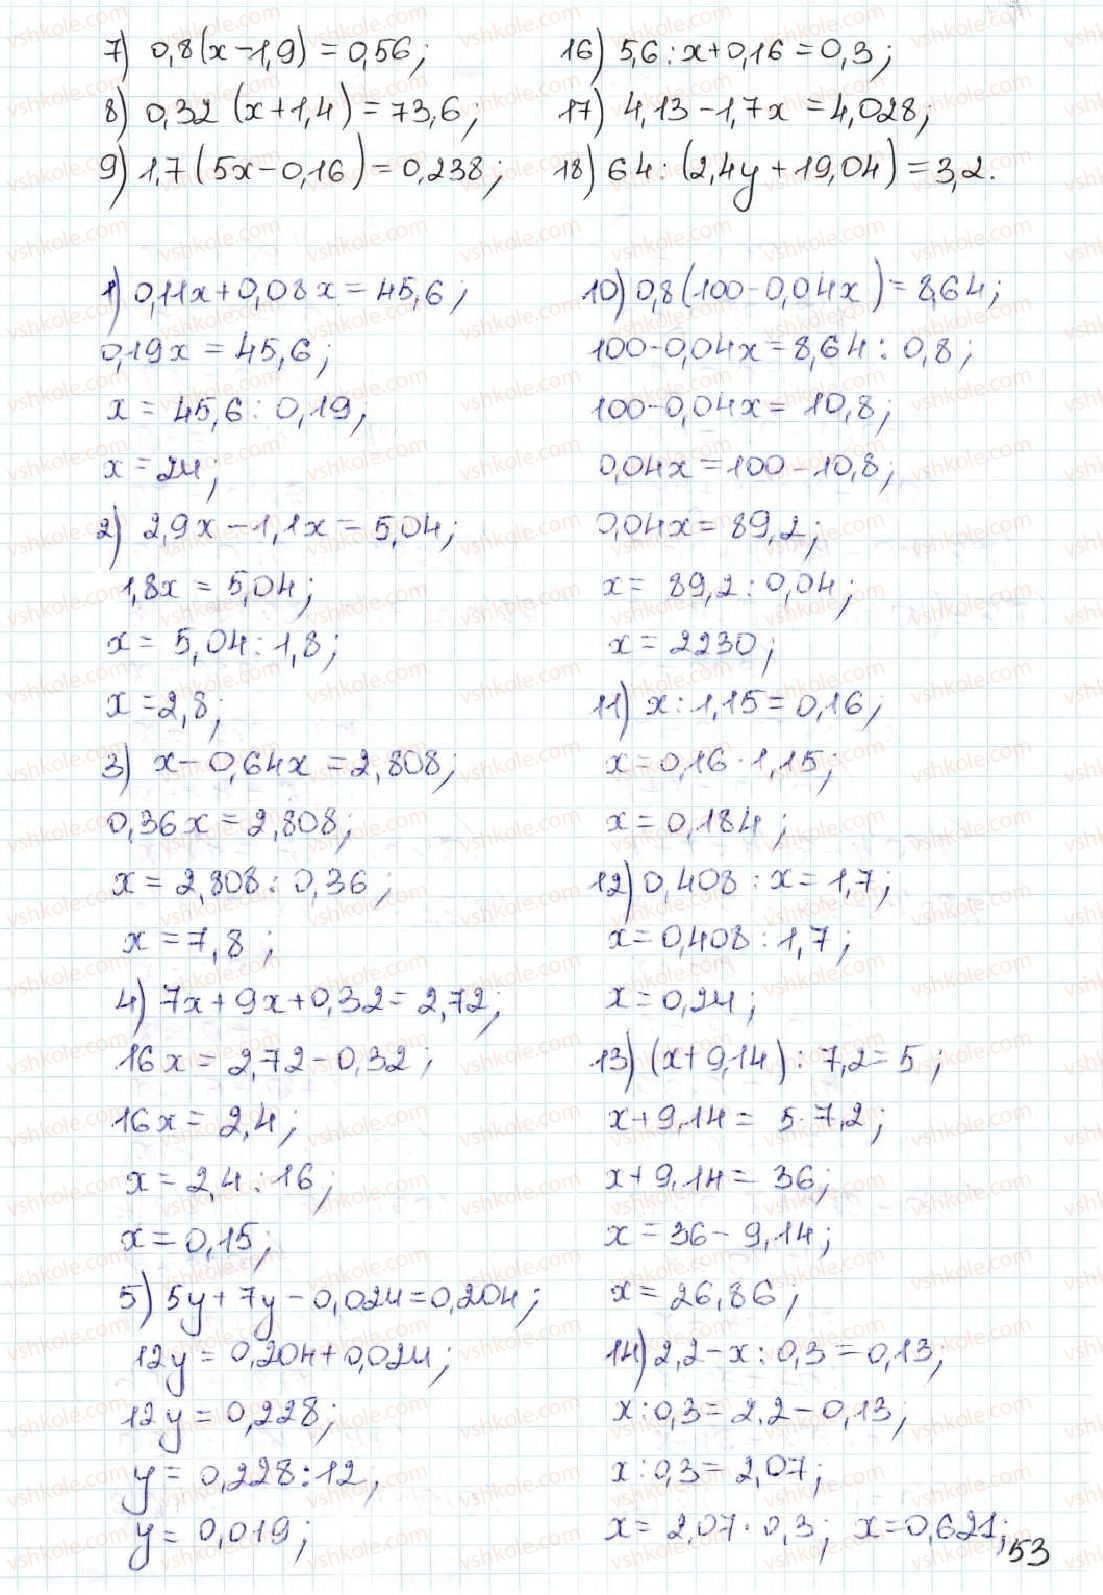 7) 0,8(x-1,9)=0,56;
8) 0,32 (x+1,4)=73,6;
9) 1,7(5x-0,16)=0,238;
16) 5,6:x+0,16=0,3;
17) 4,13-1,7x=4,028;
18) 64:(2,4y+19,04)=3,2.
1) 0,11x+0,08x=45,6;
0,19x=45,6;
x=45,6:0,19;
x=24;
2) 2,9x-1,1x=5,04;
1,8x=5,04;
x=5,04:1,8;
x=2,8;
3) x-0,64x=2,808;
0,36x=2,808;
x=2,808:0,36;
x=7,8;
4) 7x+9x+0,32=2,72;
16x=2,72-0,32;
16x=2,4;
x=2,4:16;
x=0,15;
5) 5y+7y-0,024=0,204;
12y=0,204+0,024;
12y=0,228;
y=0,228:12;
y=0,019;
10) 0,8(100-0,04x)=8,64;
100-0,04x=8,64:0,8;
100-0,04x=10,8;
0,04x=100-10,8;
0,04x=89,2;
x=89,2:0,04;
x=2230;
11) x:1,15=0,16;
x=0,16·1,15;
x=0,184;
12) 0,408:x=1,7;
x=0,408:1,7;
x=0,24;
13) (x+9,14):7,2=5;
x+9,14=5·7,2;
x+9,14=36;
x=36-9,14;
x=26,86;
14) 2,2-x:0,3=0,13;
x:0,3=2,2-0,13;
x:0,3=2,07;
x=2,07·0,3; x=0,621;
53
vshkole.com